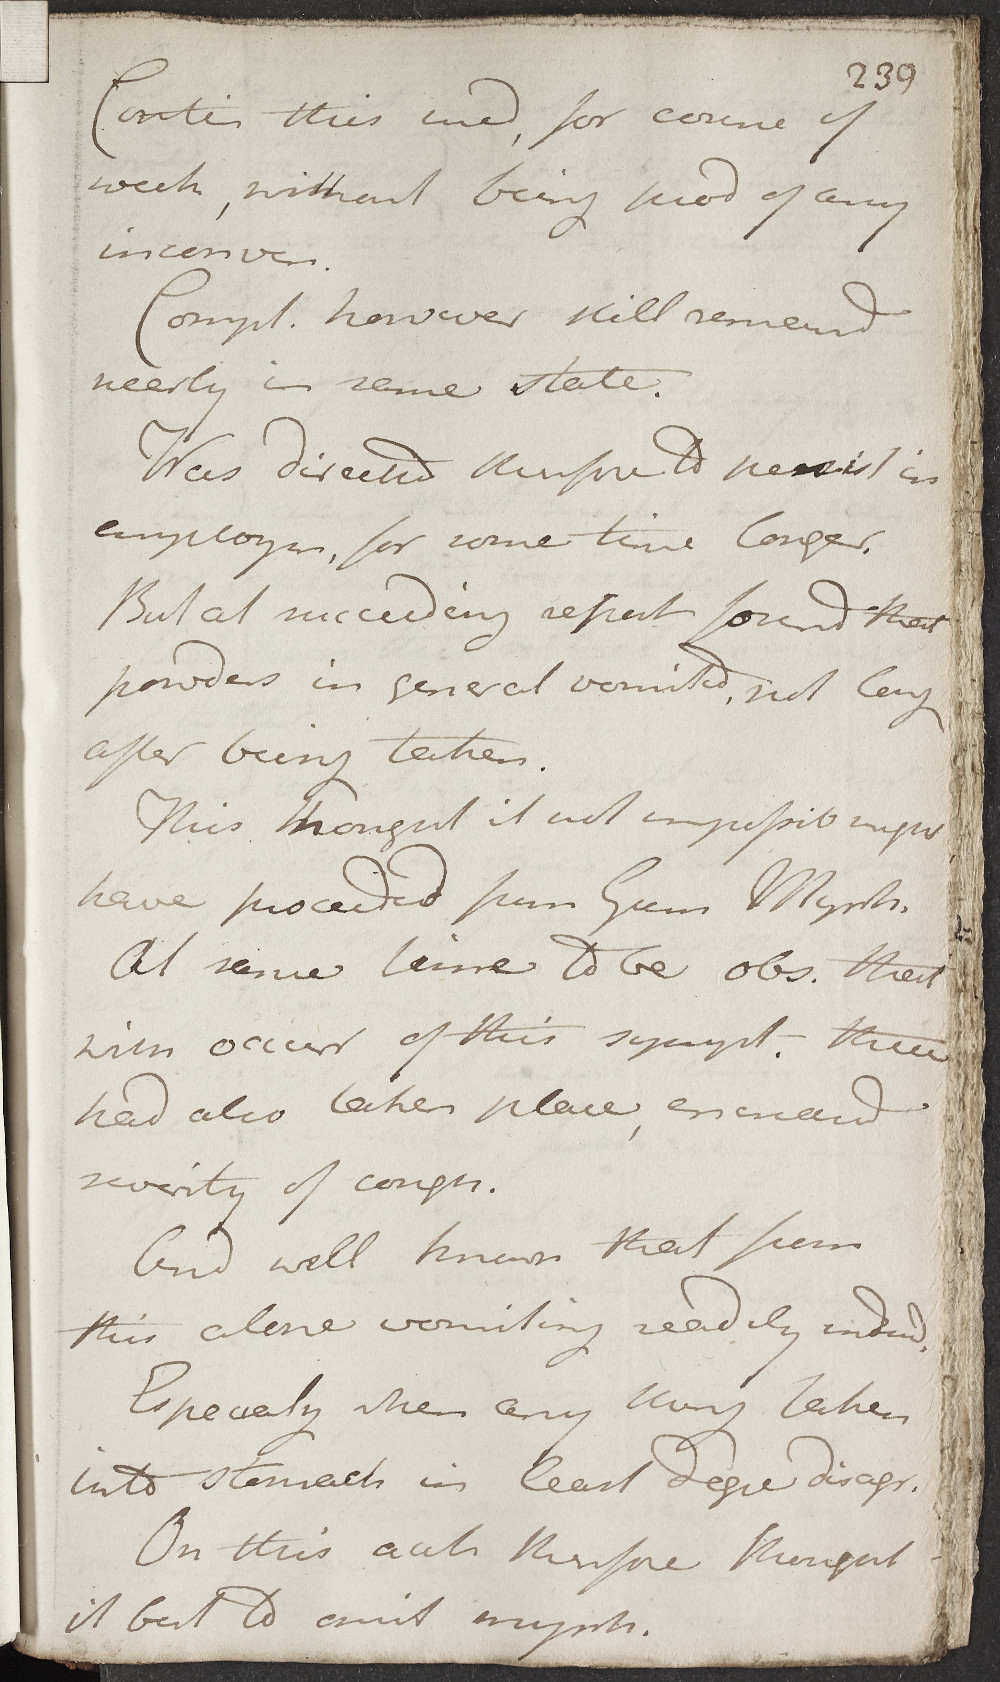 239
Contin this med, for course of
week, without being prod of any
inconven.
Compl. however still remaind
nearly in same state.
Was directed therefore to persist in
employm, for some time longer.
But at succeeding report found that
powders in general vomited, not long
after being taken.
This thought it not impossib might
have proceeded from Gum Myrrh.
At same time to be obs. that
with occurr of this sympt. there
had also taken place, encreasd
severity of cough.
And well known that from
this alone vomiting readily indud.
Especialy when any thing taken
into stomach in least degre disagr.
On this acct therefore thought
it best to omit myrrh.